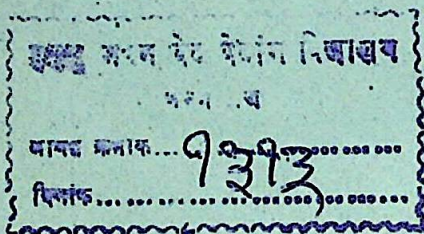 मुमुक्षु भवन वेद वेदांग विद्यालय
आगत क्रमांक... १३१३ ............
दिनांक..............................